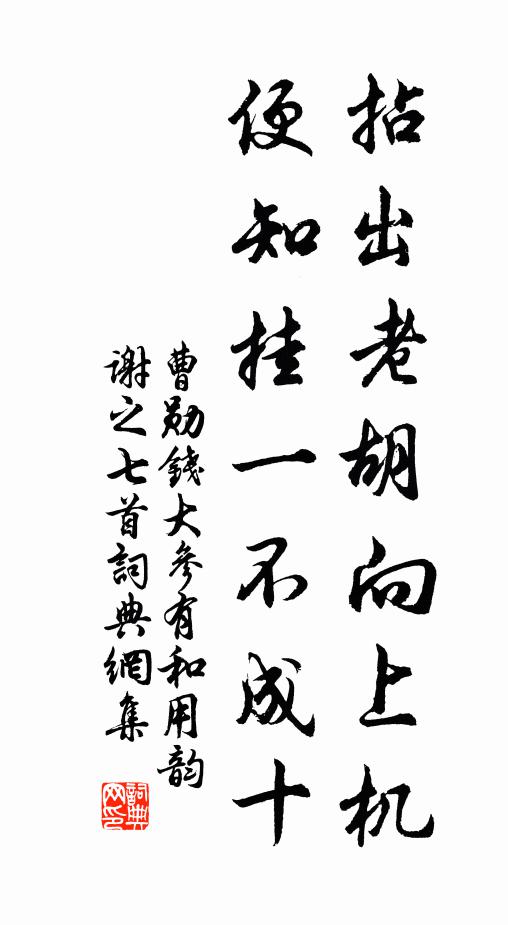 拈出老胡向上机
便知挂一不成十
曹勋錢大參有和用韵
谢之七首詞典網集
詞典
网印